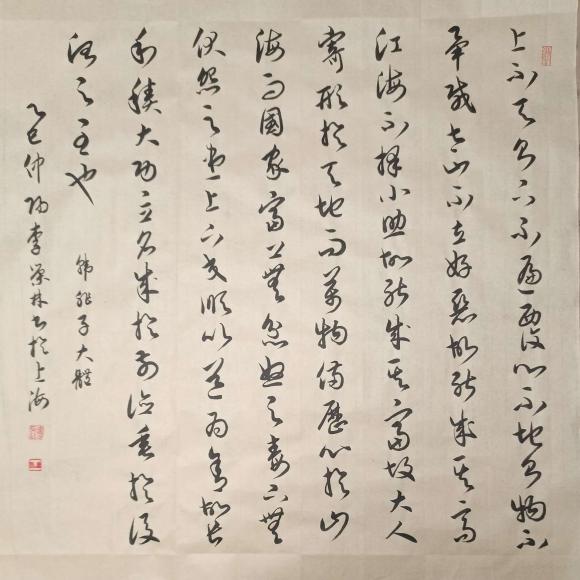 上不天則下不遍覆心不地則物不
畢載太山不立好惡故能成其高
江海不擇小助故能成其富故大人
寄形於天地而萬物備歷心於山
海而國家富上無忿怒之毒下無
伏怨之患上下交順以道為舍故長
利積大功立名成於前德垂於後
治之至也
韓非子大體
乙巳仲李榮林書於上海